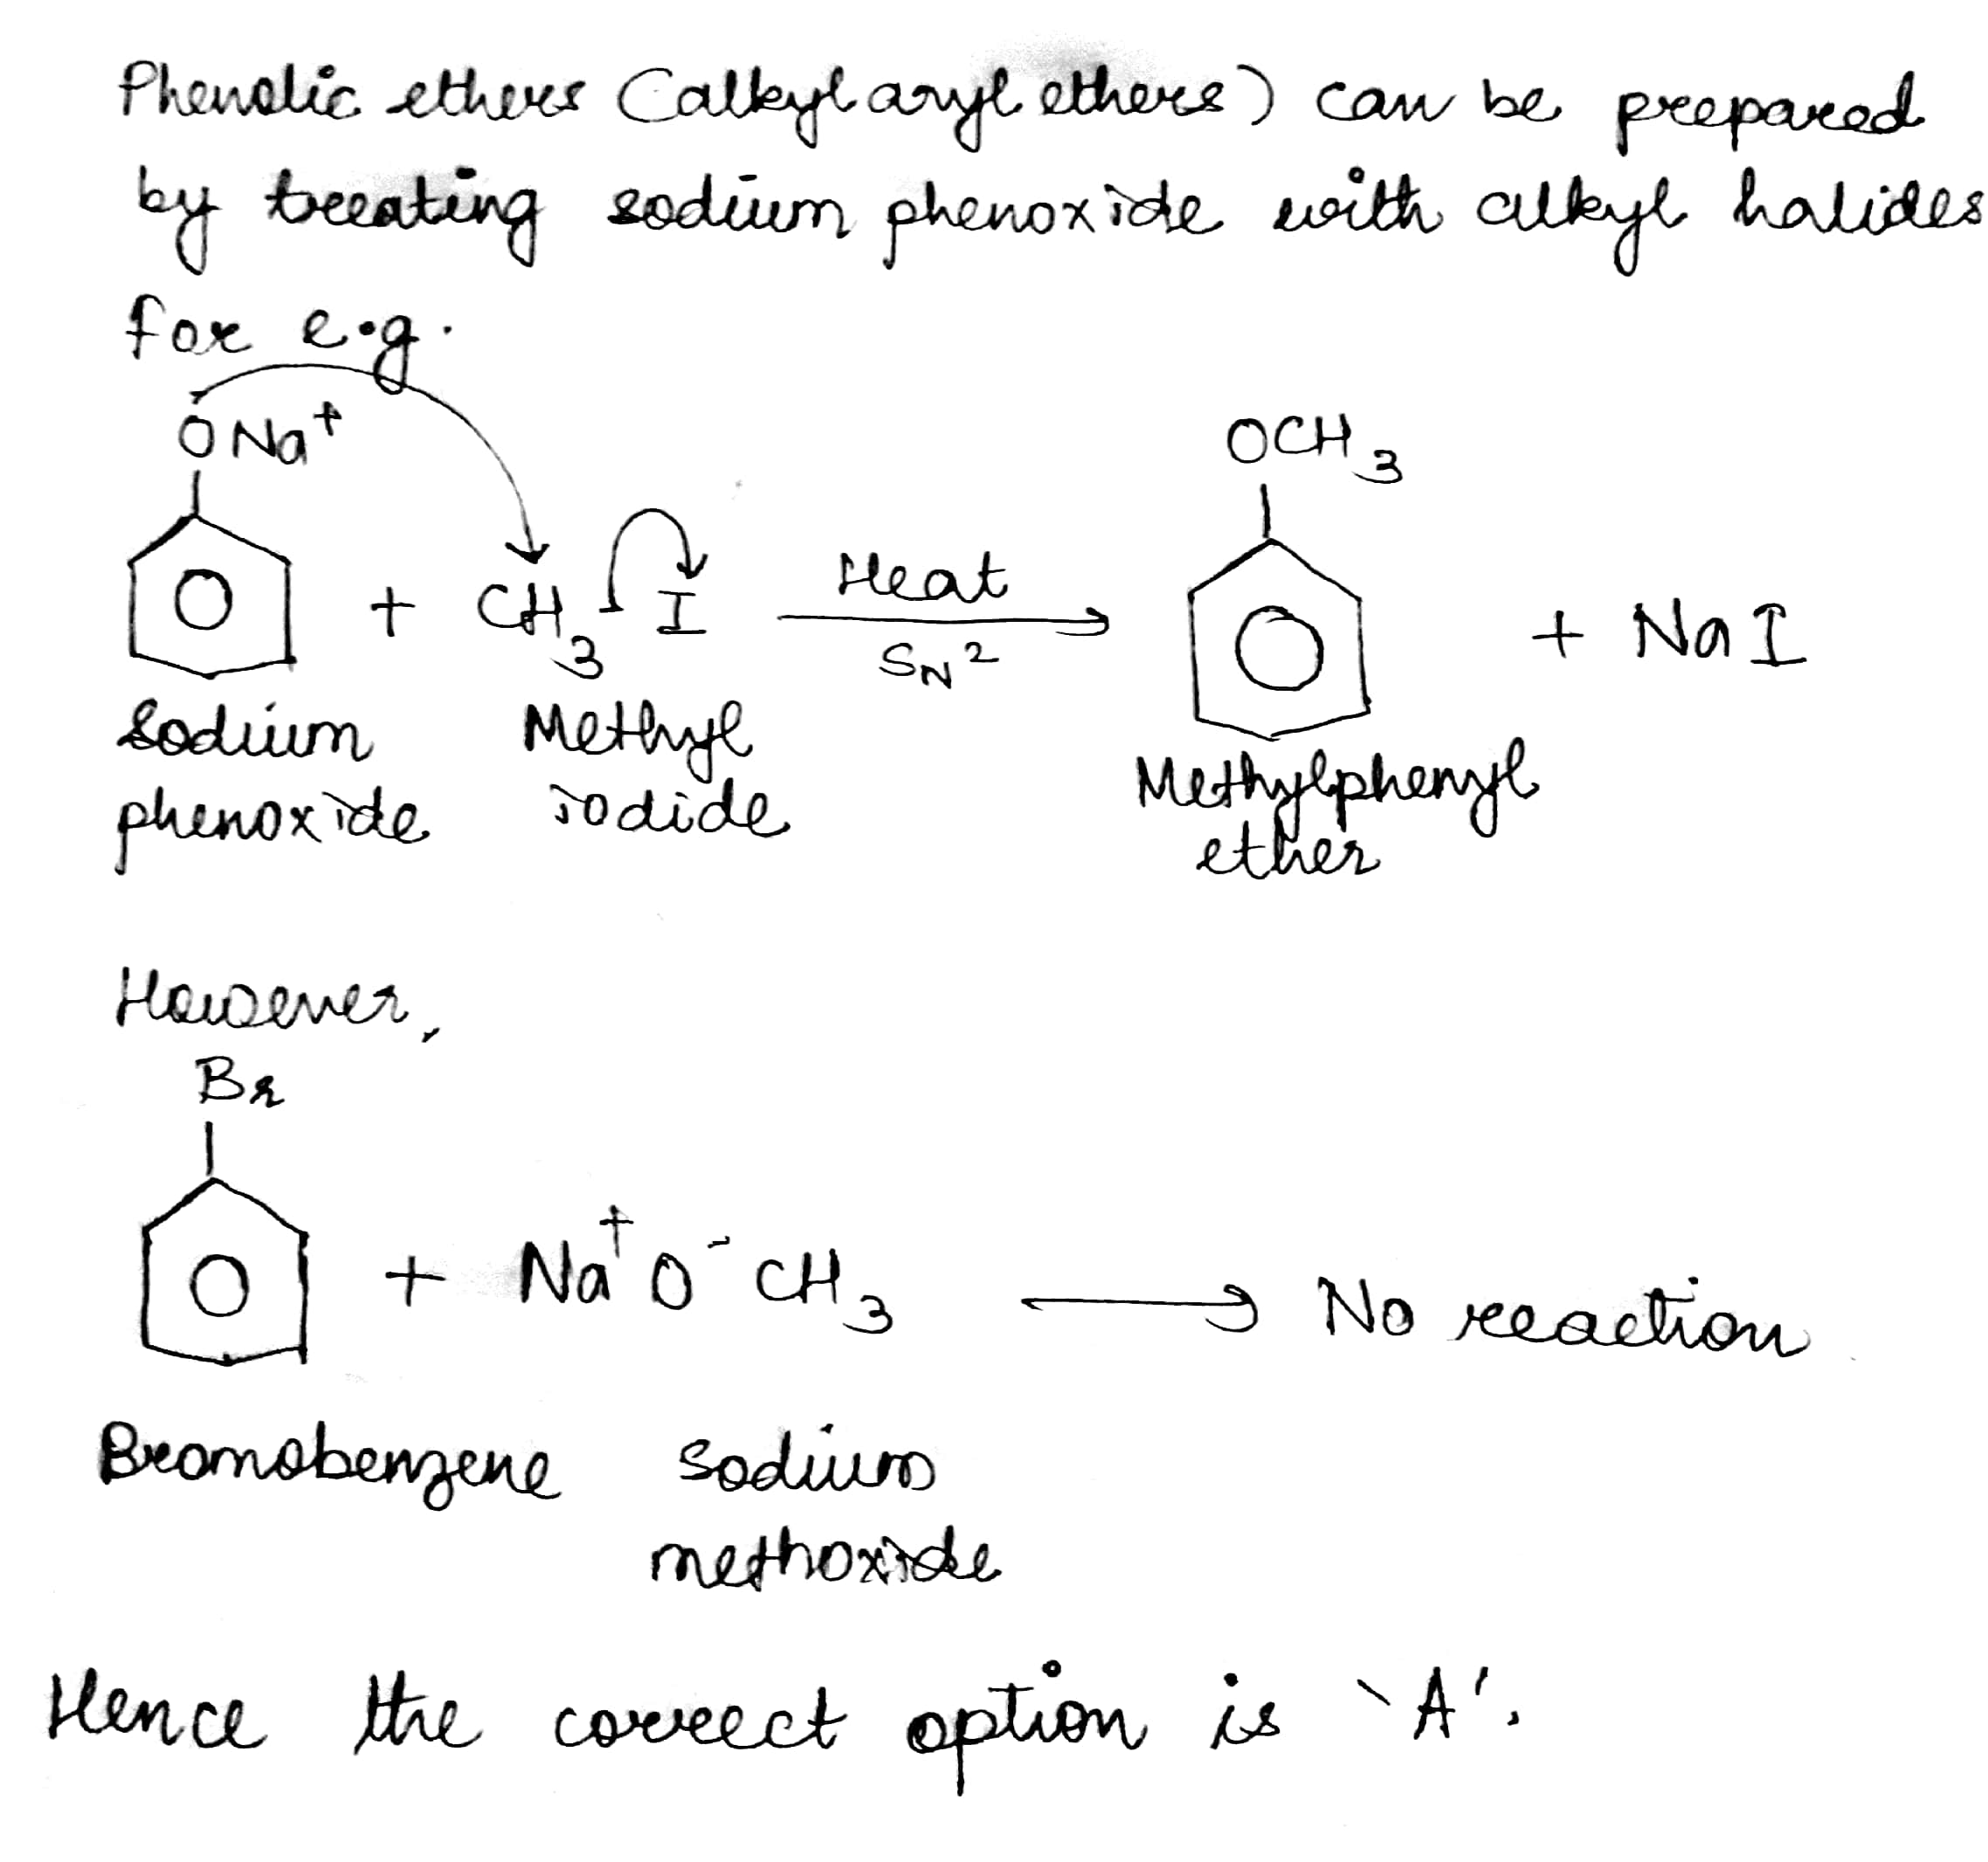 Phenolic ethers (alkyl aryl ethers) can be prepared
by treating sodium phenoxide with alkyl halides
for e.g.
ŌNa⁺
OCH₃
+ CH₃ I
Heat
SN²
+ NaI
Sodium
phenoxide
Methyl
iodide
Methylphenyl
ether
However,
Br
+ Na⁺O⁻CH₃ → No reaction
Bromobenzene
Sodium
methoxide
Hence the correct option is 'A'.